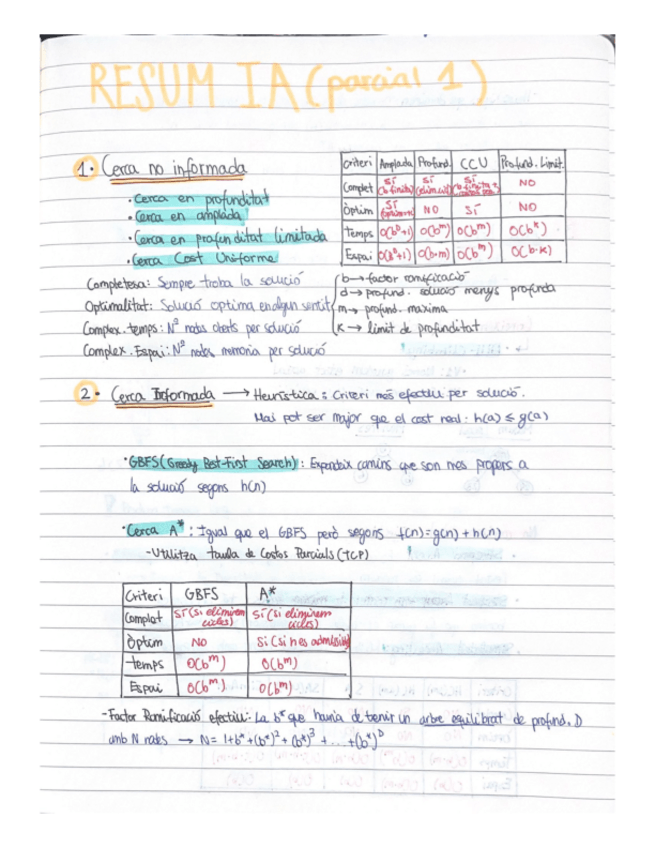 RESUM IA (parcial 1)
1. Cerca no informada
· Cerca en profunditat
· Cerca en amplada
· Cerca en profunditat limitada
· Cerca Cost Uniforme
Criteri Amplada Profund. CCU Profund. Limit.
Complet SÍ (b finita) SÍ SÍ NO
Òptim SÍ NO SÍ NO
Temps O(b^D+1) O(b^m) O(b^m) O(b^k)
Espai O(b^D+1) O(b·m) O(b^m) O(b·k)
Completesa: Sempre troba la solució
Optimalitat: Solució optima en algun sentit
Complex. temps: Nº nodes oberts per solució
Complex. Espai: Nº nodes memoria per solució
b → factor ramificació
d → profund. solució menys profunda
m → profund. maxima
K → limit de profunditat
2. Cerca Informada → Heurística: Criteri més efectiu per solució.
Mai pot ser major que el cost real: h(a) ≤ g(a)
· GBFS (Greedy Best-First Search): Expandeix camins que son mes propers a
la solució segons h(n)
· Cerca A*: Igual que el GBFS però segons f(n)=g(n)+h(n)
- Utilitza taula de Costos Parcials (TCP)
Criteri GBFS A*
Complet SÍ (si eliminem cicles) SÍ (si eliminem cicles)
Òptim NO Si (si h es admissible)
temps O(b^m) O(b^m)
Espai O(b^m) O(b^m)
- Factor Ramificació efectiu: La b* que hauria de tenir un arbre equilibrat de profund. D
amb N nodes → N = 1+b*+(b*)²+(b*)³+...+(b*)^D